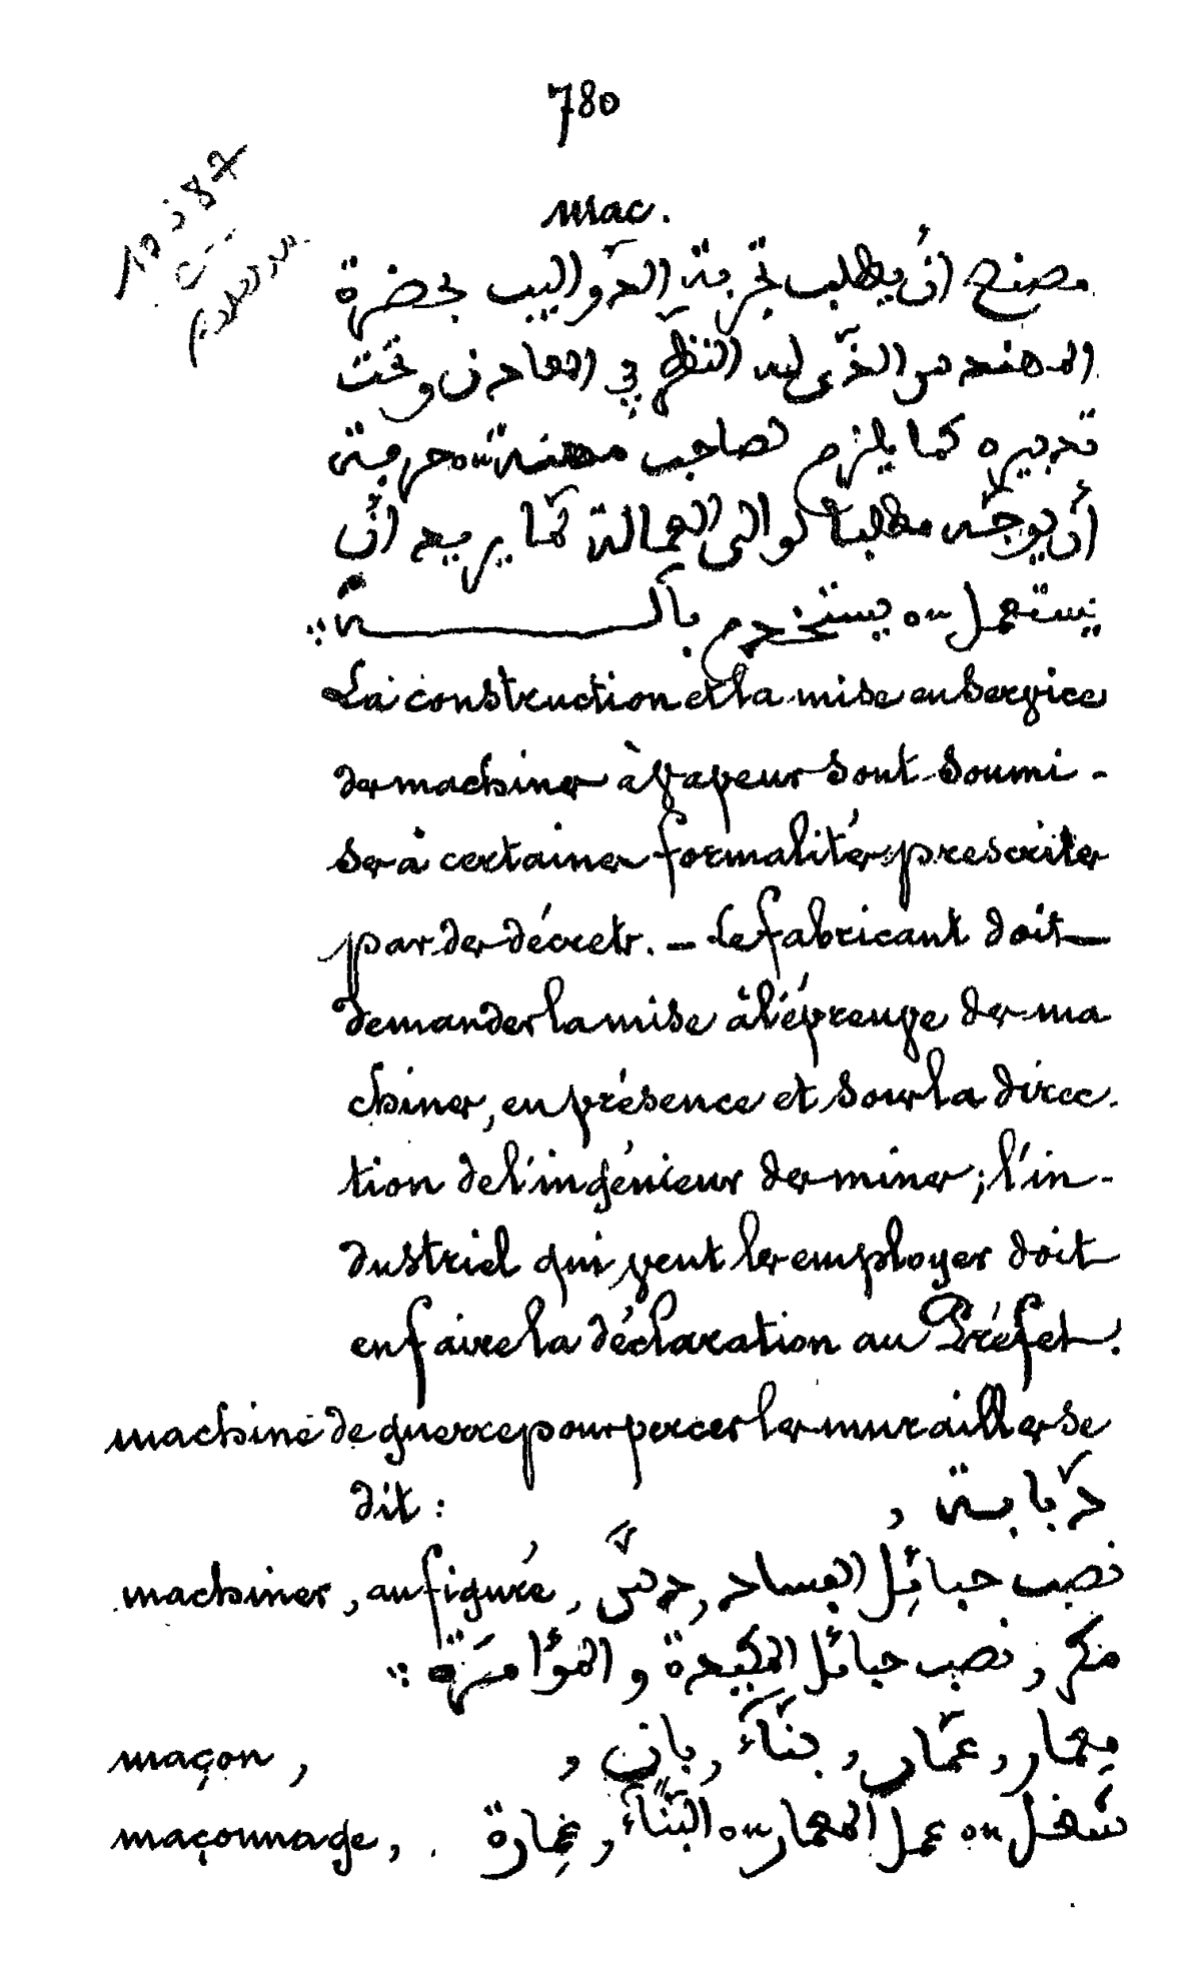 780
mac.
مصنع انْ يطلب تجربة الدّواليب بحضرة
المهندس الذّى ليه النّظر في المعادن وتحت
تدبيره كما يلزم لصاحب مهنة ou حرفة
أن يوجّه مطلبا لوالى العمالة لمّا يريد انْ
يستعمل ou يستخدم بآلــــة
La construction et la mise en service
des machines à vapeur sont soumi-
ses à certaines formalités prescrites
par des décrets. — Le fabricant doit
demander la mise à l'épreuve des ma
chines, en présence et sous la direc-
tion de l'ingénieur des mines; l'in-
dustriel qui veut les employer doit
en faire la déclaration au Préfet.
machine de guerre pour percer les murailles se
dit : دبّابة ,
machiner, au figuré, نصب حبائل الفساد, دسّ,
مكر, نصب حبائل المكيدة و المؤامرة
maçon, معمار, عمّار, بنّاء, بانى,
maçonnage, شغل ou عمل المعمار ou البنّاء, عمارة